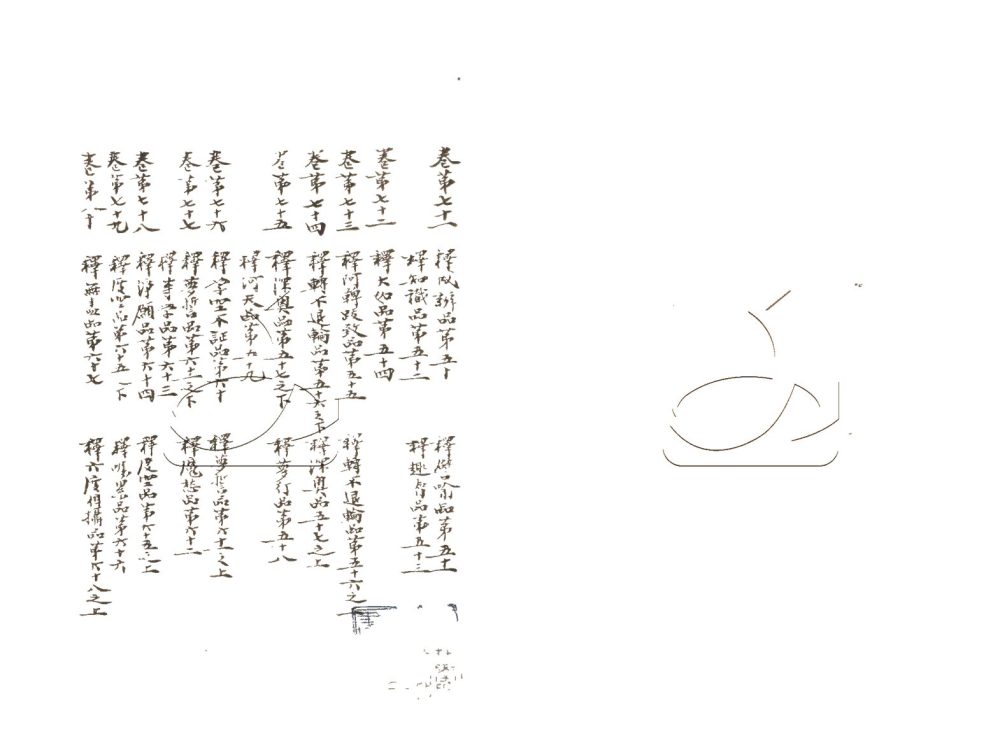 卷第七十一 釋成辦品第五十 釋譬喻品第五十一
釋知識品第五十二 釋趣智品第五十三
卷第七十二 釋大如品第五十四
卷第七十三 釋阿鞞跋致品第五十五 釋轉不退輪品第五十六之上
卷第七十四 釋轉不退輪品第五十六之下 釋深奧品五十七之上
卷第七十五 釋深奧品第五十七之下 釋夢行品第五十八
釋河天品第五十九
卷第七十六 釋學空不証品第六十 釋夢誓品第六十一之上
卷第七十七 釋夢誓品第六十一之下 釋魔愁品第六十二
釋等學品第六十三
卷第七十八 釋淨願品第六十四 釋度空品第六十五之上
卷第七十九 釋度空品第六十五之下 釋囑累品第六十六
卷第八十 釋無盡品第六十七 釋六度相攝品第六十八之上